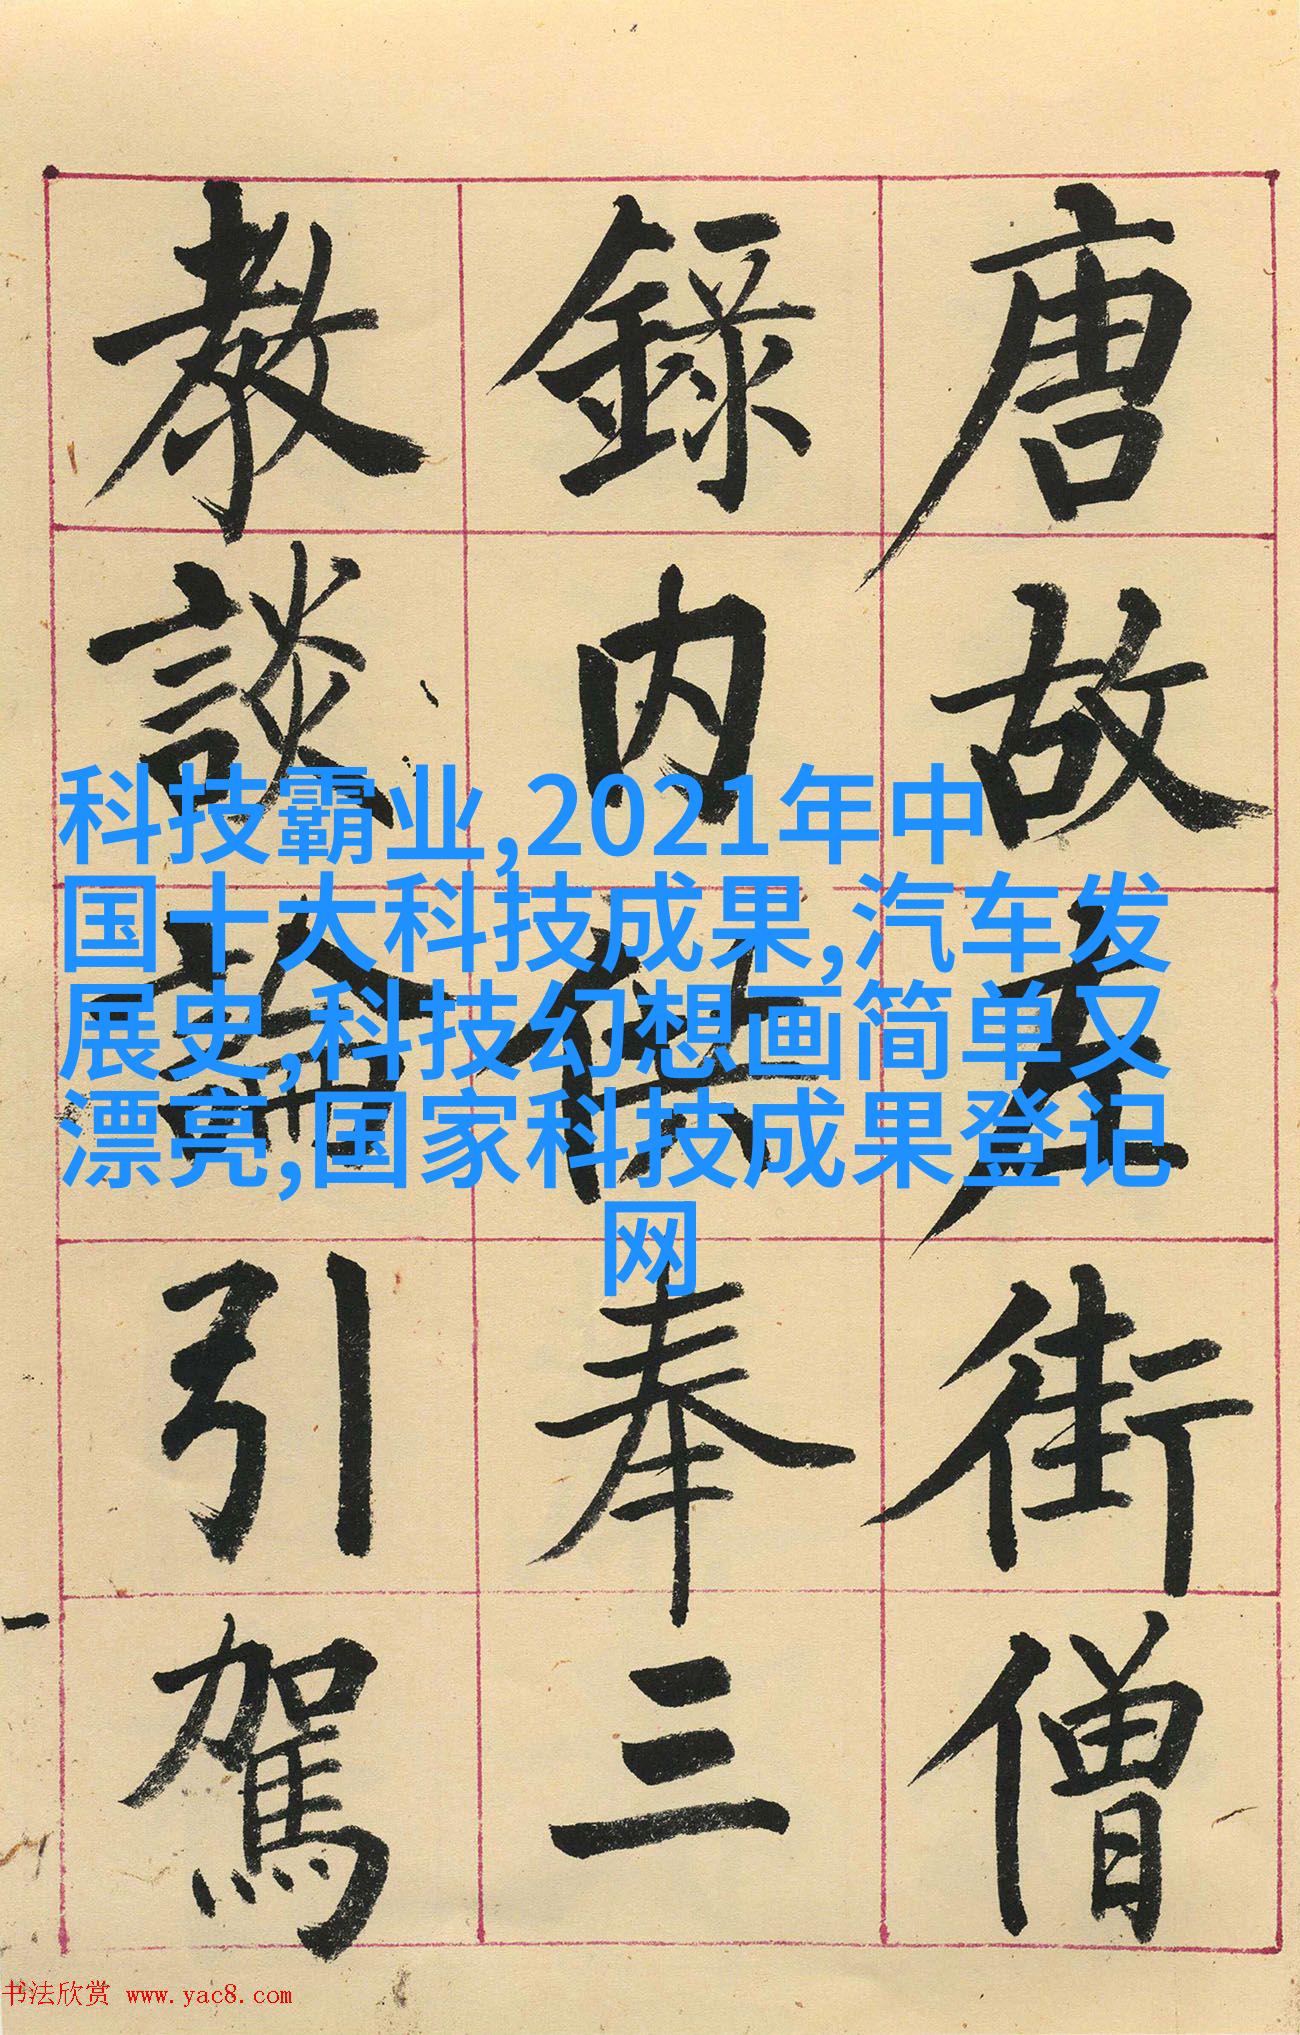 唐故左街僧
錄內供奉三
教談論引駕
科技霸业,2021年中
国十大科技成果,汽车发
展史,科技幻想画简单又
漂亮,国家科技成果登记
网
书法欣赏 www.yac8.com